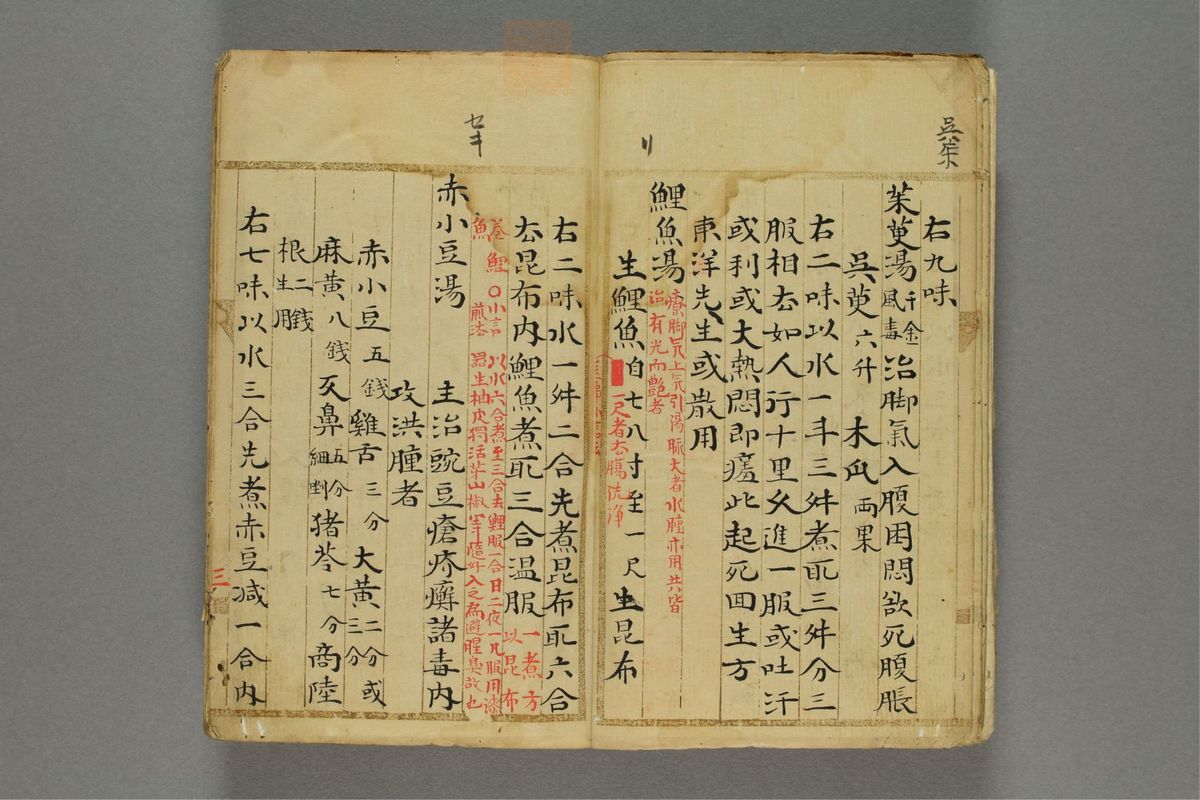 右九味
茱萸湯 千金 風毒 治脚氣入腹困悶欲死腹脹
呉萸 六升 木瓜 兩果
右二味以水一斗三舛煮取三舛分三
服相去如人行十里久進一服或吐汗
或利或大熱悶即瘥此起死回生方
東洋先生或散用
鯉魚湯 療脚氣上氣引湯脈大者水腫亦用共皆
治有光而艶者
生鯉魚 自七八寸至一尺 生昆布
一尺者去膓洗淨
リ
右二味水一舛二合先煮昆布取六合
去昆布内鯉魚煮取三合温服 一煮方
以昆布
卷鯉 〇小言 以水六合煮至三合去鯉服一合日二夜一
魚 煎法
赤小豆湯 主治豌豆瘡疥癬諸毒内
攻洪腫者
赤小豆 五錢 雞舌 三分 大黄 二分或三分
麻黄 八錢 反鼻 五分細剉 猪苓 七分 商陸
根 二錢生用
右七味以水三合先煮赤豆減一合内
セキ
三